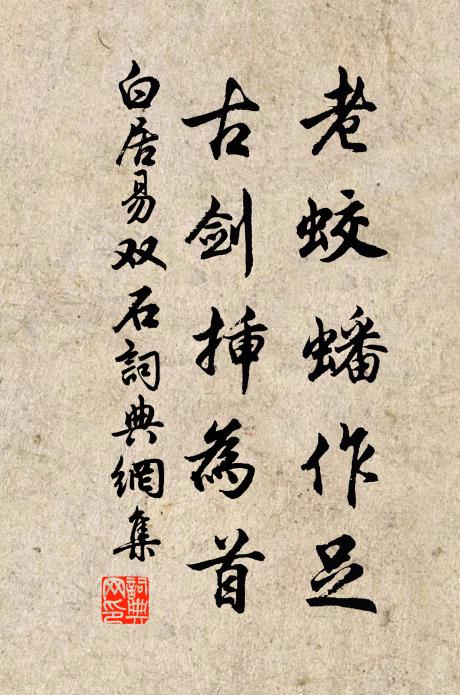 老蛟蟠作足
古剑挿為首
白居易双石詞典網集
詞典网印